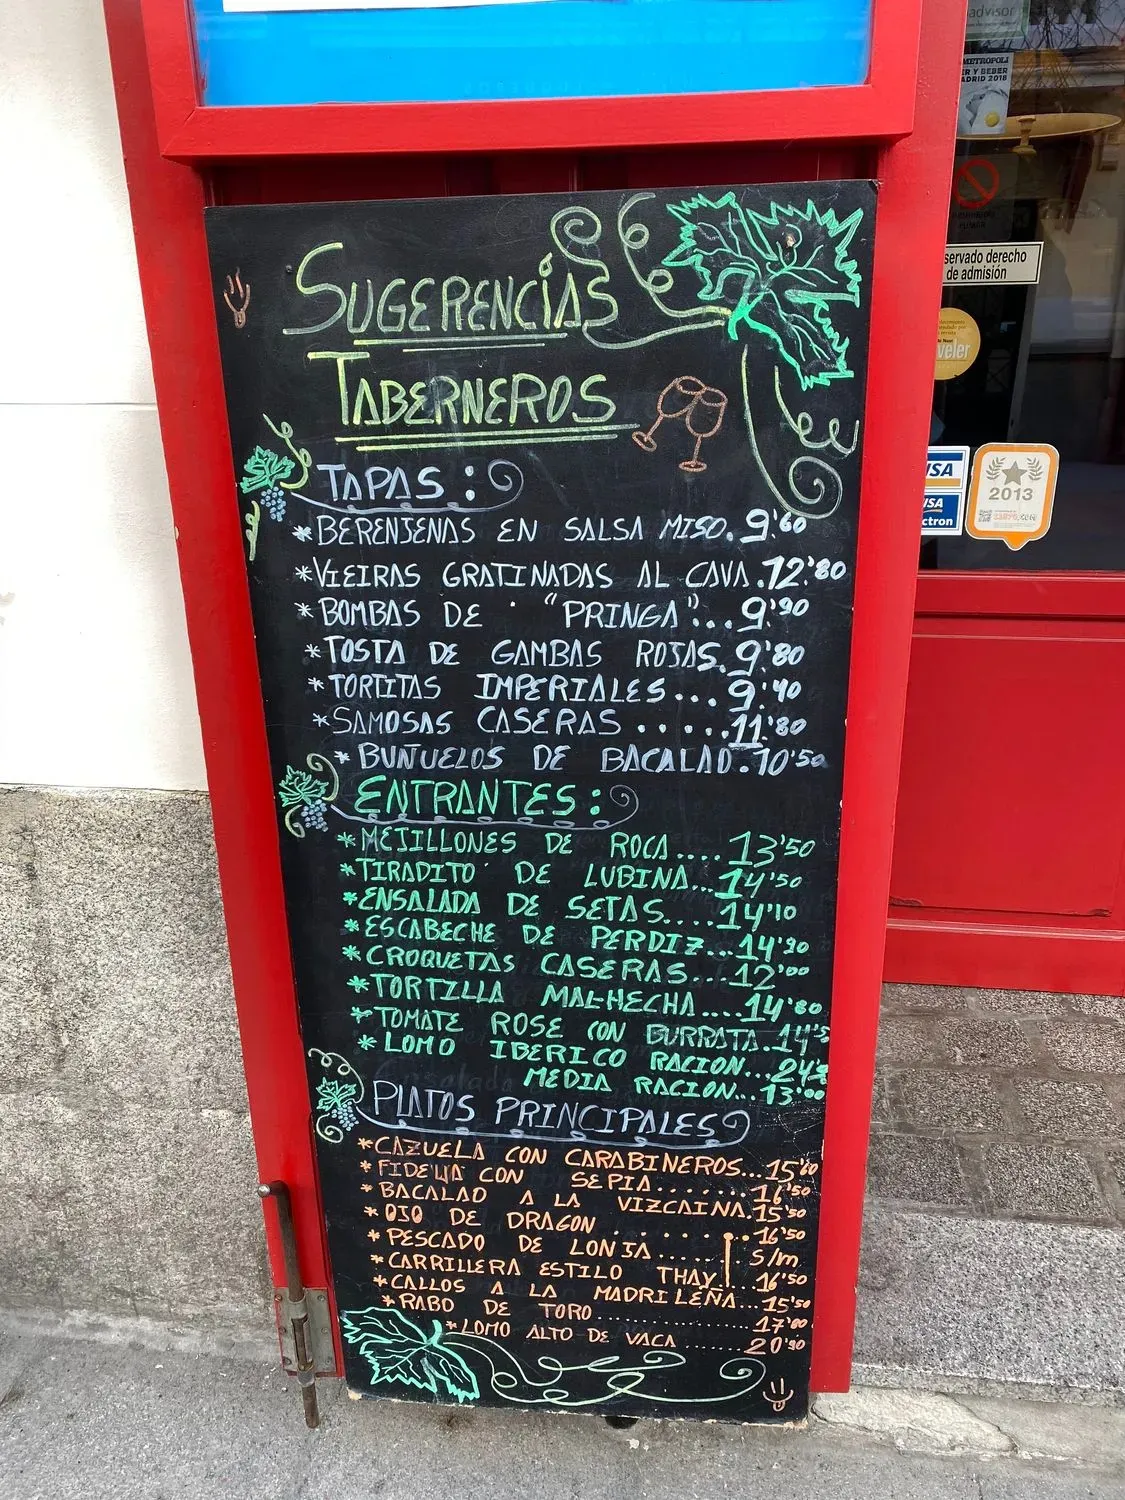 SUGERENCÍAS
TABERNEROS
TAPAS:
*BERENJENAS EN SALSA MISO. 9'60
*VIEIRAS GRATINADAS AL CAVA. 12'80
*BOMBAS DE "PRINGA"... 9'90
*TOSTA DE GAMBAS ROJAS. 9'80
*TORTITAS IMPERIALES... 9'40
*SAMOSAS CASERAS ..... 11'80
*BUÑUELOS DE BACALAO. 10'50
ENTRANTES:
*MEJILLONES DE ROCA.... 13'50
*TIRADITO DE LUBINA... 14'50
*ENSALADA DE SETAS.... 14'10
*ESCABECHE DE PERDIZ.. 14'20
*CROQUETAS CASERAS... 12'00
*TORTILLA MAL-HECHA.... 14'80
*TOMATE ROSE CON BURRATA. 14'5
*LOMO IBERICO RACION... 24'
MEDIA RACION... 13'00
PLATOS PRINCIPALES
*CAZUELA CON CARABINEROS... 15'60
*FIDEUA CON SEPIA....... 16'50
*BACALAO A LA VIZCAINA. 15'50
*OJO DE DRAGON ...... 16'50
*PESCADO DE LONJA ...... S/m
*CARRILLERA ESTILO THAY.. 16'50
*CALLOS A LA MADRILEÑA... 15'50
*RABO DE TORO .............. 17'80
*LOMO ALTO DE VACA ....... 20'90
advisor
METROPOLI
ER Y BEBER
ADRID 2018
servado derecho
de admisión
veler
VISA
VISA
ctron
2013